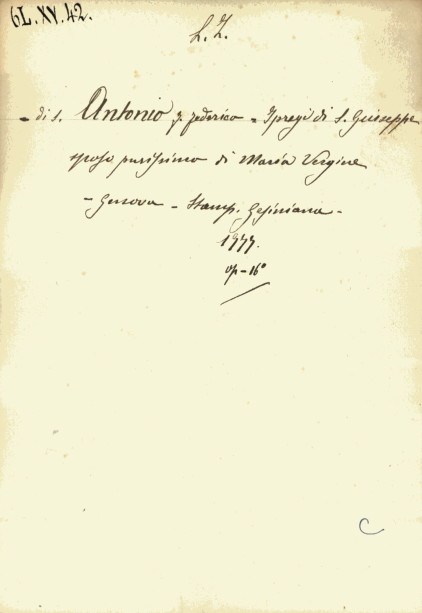 6L.XV.42.
L. Z.
- di S. Antonio P. Federico - I pregi di S. Giuseppe
sposo purissimo di Maria Vergine
- Genova - Stamp. Gesiniana -
1777.
op - 16°
C